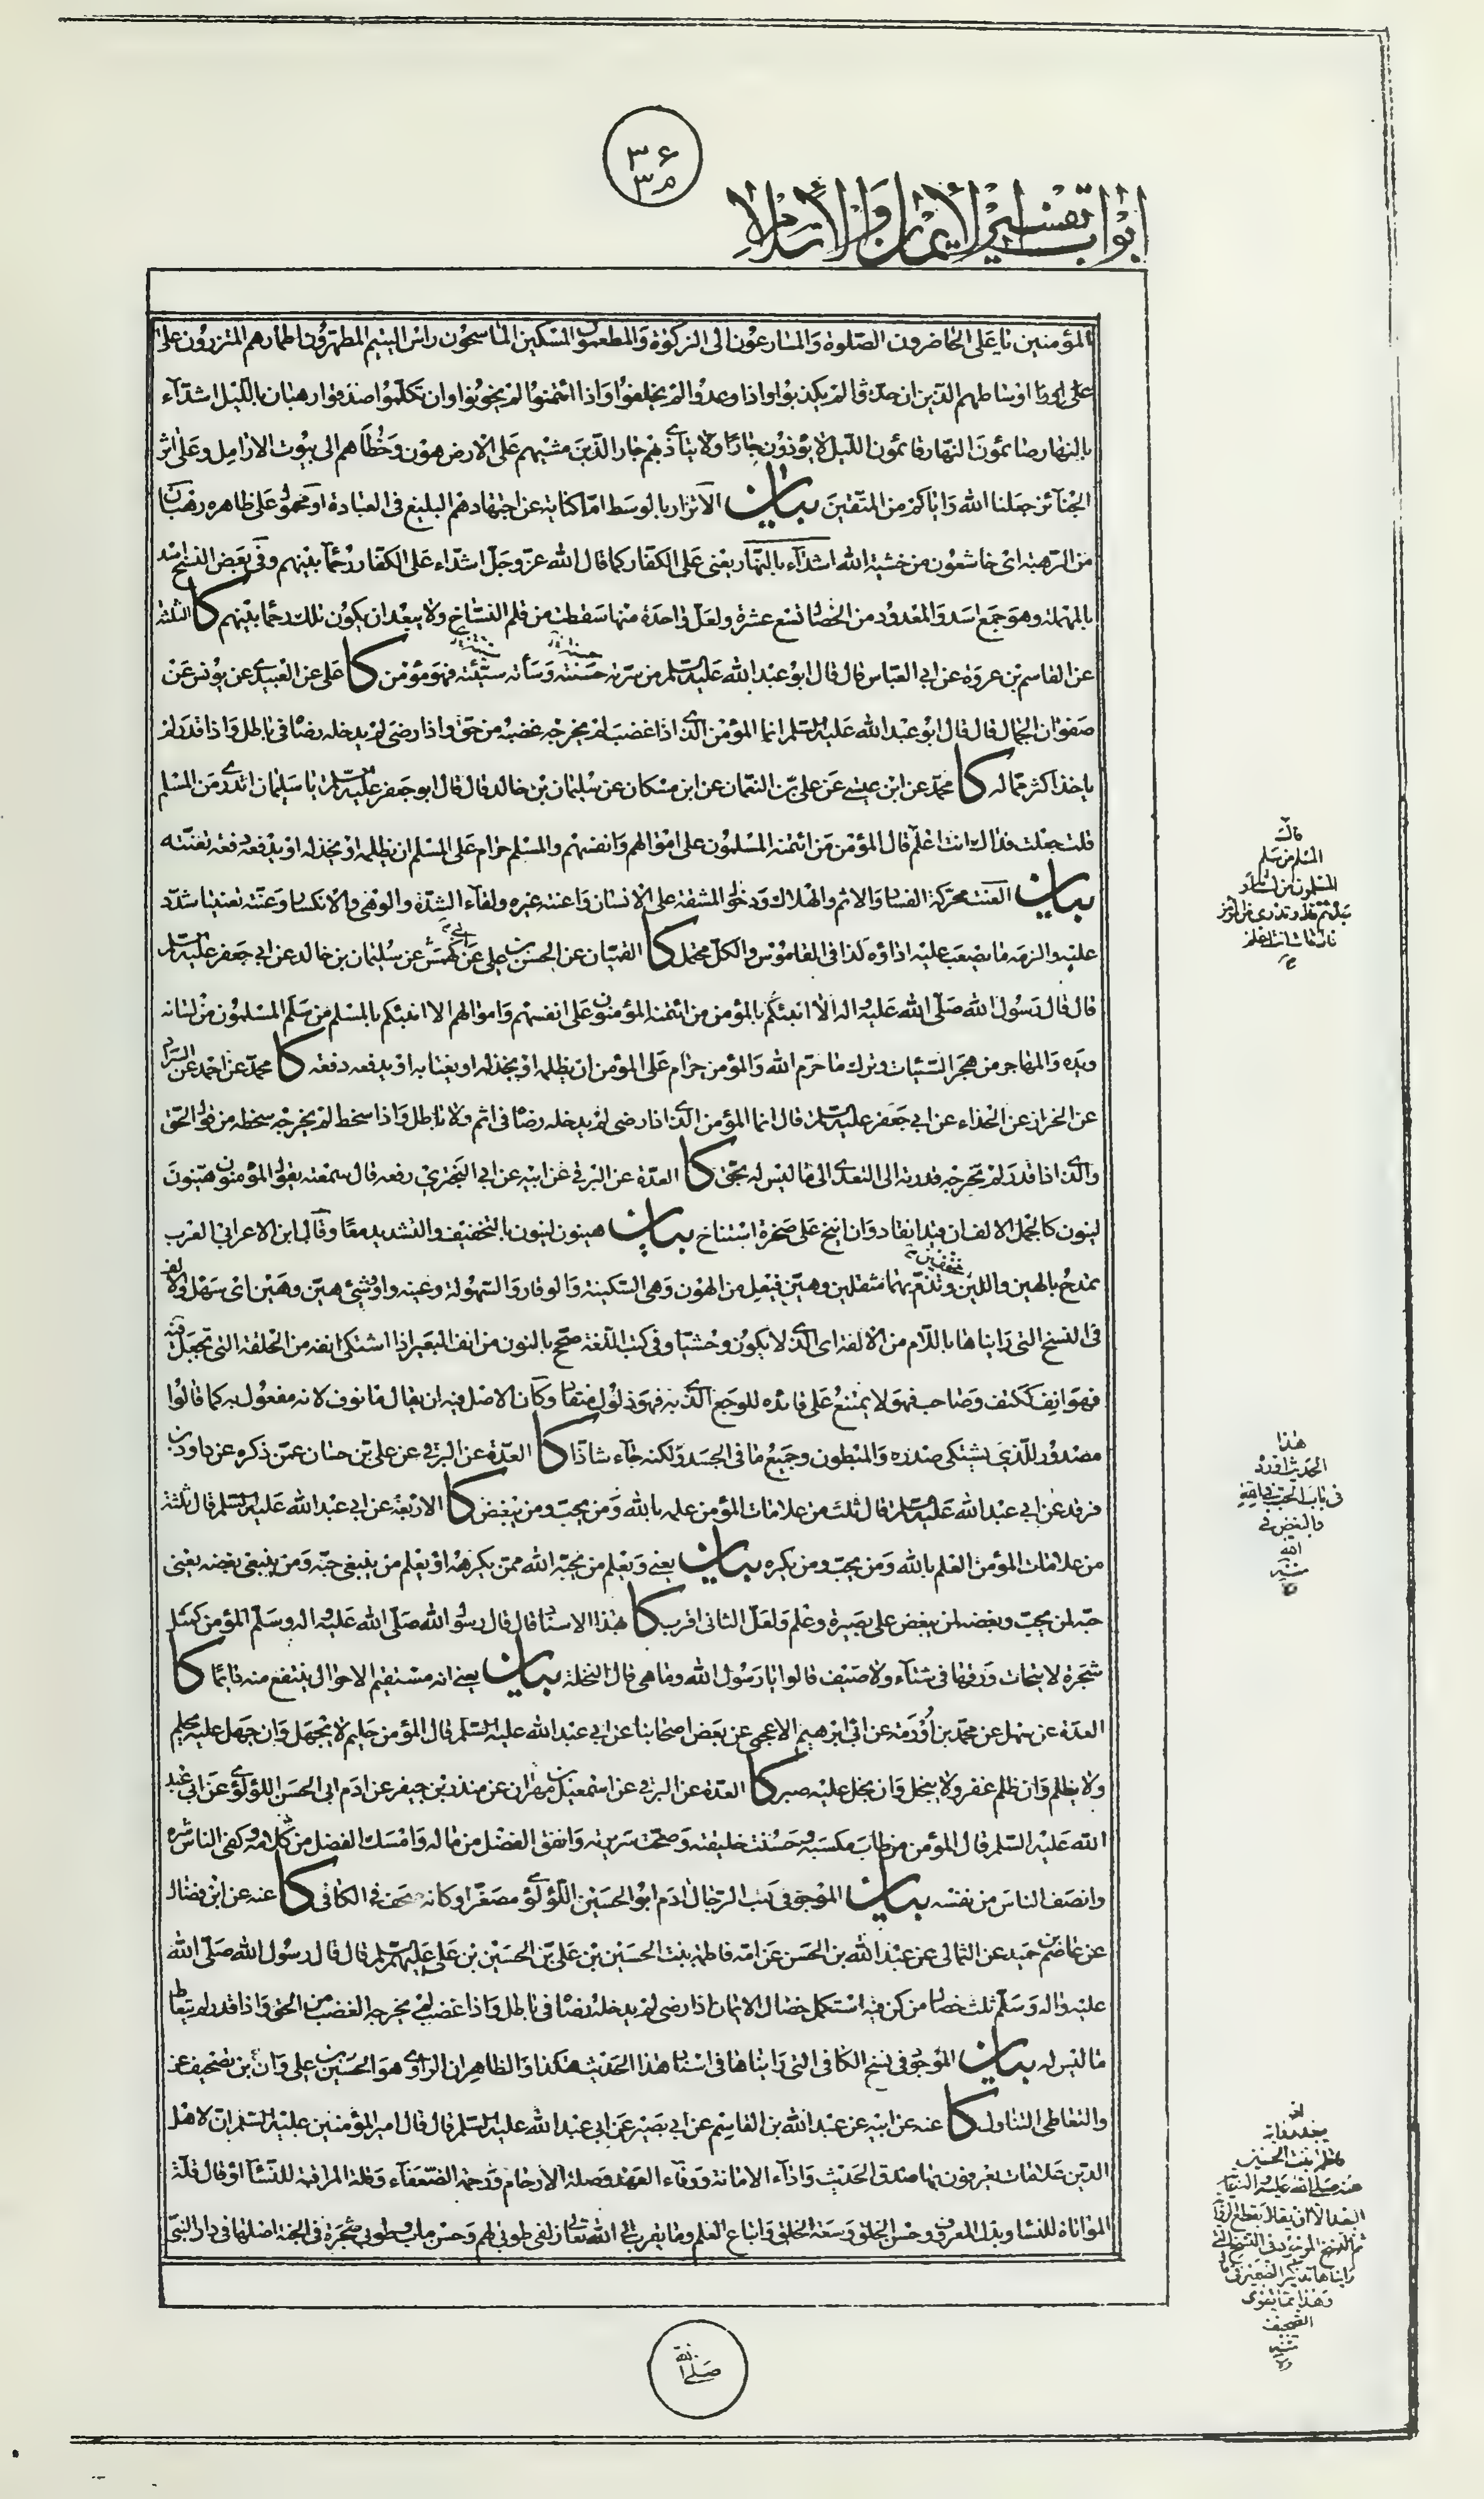 ٣٦
٣م
ابواب تفسير الايمان والاسلام
المؤمنين يا على الحاضرون الصّلوة والمسارعون الى الزكوة والمطعمون المسكين الماسحون راس اليتيم المطهّرون اطمارهم المتزرون على
على اوساطهم الّذين ان حدّثوا لم يكذبوا واذا وعدوا لم يخلفوا واذا ائتمنوا لم يخونوا وان تكلّموا صدقوا رهبان بالليل اشدّآء
بالنهار صائمون النهار قائمون الليل لا يؤذون جارا ولا يتاذى بهم جار الّذين مشيهم على الارض هون وخُطاهم الى بيوت الارامل وعلى اثر
الجنآئز جعلنا الله واياكم من المتّقين بيان الاتزار بالوسط امّا كناية عن اجتهادهم البليغ فى العبادة او محمول على ظاهره رهبان
من الرّهبة اى خاشعون من خشية الله اشدّآء بالنهار يعنى على الكفّار كما قال الله عزّ وجلّ اشدّاء على الكفّار رحمآء بينهم وفى بعض النسخ اسد
بالمهملة وهو جمع اسد والمعدود من الخصال تسع عشرة ولعلّ واحدة منها سقطت من قلم النسّاخ ولا يبعد ان يكون تلك رحماء بينهم كا الثلثة
عن القاسم بن عروة عن ابي العباس قال قال ابو عبد الله عليه السّلم من سرّته حسنته وسأته سيّئته فهو مؤمن كا على عن العبيدى عن يونس عن
صفوان الجمال قال قال ابو عبد الله عليه السّلم انما المؤمن الّذى اذا غضب لم يخرجه غضبه من حق واذا رضى لم يدخله رضاه فى باطل واذا قدر لم
ياخذ اكثر ممّا له كا محمّد عن ابن عيسى عن على بن النعمان عن ابن مسكان عن سليمان بن خالد قال قال ابو جعفر عليه السّلم يا سليمان اتدرى من المسلم
قلت جعلت فداك انت اعلم قال المؤمن من ائتمنه المسلمون على اموالهم وانفسهم والمسلم حرام على المسلم ان يظلمه او يخذله او يدفعه دفعة تعنّته
بيان العنت محرّكة الفساد والاثم والهلاك ودخول المشقّة على الانسان واعنته غيره ولقاء الشدّة والوهى والانكسار وعنّته تعنيتا شدّد
عليه والزمه ما يصعب عليه اداؤه كذا فى القاموس والكل محتمل كا القميّان عن الحسن بن على عن ابى كهمش عن سليمان بن خالد عن ابي جعفر عليه السّلم
قال قال رسول الله صلّى الله عليه واله الا انبئكم بالمؤمن من ائتمنه المؤمنون على انفسهم واموالهم الا انبئكم بالمسلم من سلم المسلمون من لسانه
ويده والمهاجر من هجر السّيئات وترك ما حرّم الله والمؤمن حرام على المؤمن ان يظلمه او يخذله او يغتابه او يدفعه دفعة كا محمّد عن احمد عن السرّاد
عن الخراز عن الحذاء عن ابي جعفر عليه السّلم قال انما المؤمن الّذى اذا رضى لم يدخله رضاه فى اثم ولا باطل واذا سخط لم يخرجه سخطه من قول الحق
والّذى اذا قدر لم تخرجه قدرته الى التعدّى الى ما ليس له بحق كا العدّة عن البرقي عن ابيه عن ابي البخترى رفعه قال سمعته يقول المؤمنون هيّنون
لينون كالجمل الالف ان قيد انقاد وان انيخ على صخرة استناخ بيان هينون لينون بالتخفيف والتشديد معا وقال ابن الاعرابي العرب
تمدح بالهين واللين مخففين وتذمّ بهما مثقلين وهيّن فيعل من الهون وهى السّكينة والوقار والسّهولة وعينه واو وشئ هيّن وهَيْن اى سهل والالف
فى النسخ التى رايناها باللّام من الالفة اى الّذى لا يكون وحشيّا وفى كتب اللّغة صحّح بالنون من انف البعير اذا اشتكى انفه من الحلقة التى تجعل فيه
فهو انِف ككتف وصاحب فهو لا يمتنع على قائده للوجع الّذى به فهو ذلول منقاد وكان الاصل فيه ان يقال مانوف لانه مفعول به كما قالوا
مصدور للّذى يشتكى صدره والمبطون وجميع ما فى الجسد ولكنه جآء شاذّا كا العدّة عن البرقي عن على بن حسان عمّن ذكره عن داود بن
فرقد عن ابى عبد الله عليه السّلم قال ثلث من علامات المؤمن علمه بالله ومن يحب ومن يبغض كا الاربعة عن ابي عبد الله عليه السّلم قال ثلثة
من علامات المؤمن العلم بالله ومن يحبّ ومن يكره بيان يعنى ويعلم من يحبّه الله ممّن يكرهه او يعلم من ينبغى حبّه ومن ينبغى بغضه يعنى
حبّه لمن يحبّ وبغضه لمن يبغض على بصيرة وعلم ولعلّ الثانى اقرب كا هذا الاسناد قال قال رسول الله صلّى الله عليه واله وسلّم المؤمن كمثل
شجرة لا يتحات ورقها فى شتآء ولا صيف قالوا يا رسول الله وما هى قال النخلة بيان يعنى انه مستقيم الاحوال ينتفع منه دايمًا كا
العدّة عن سهل عن محمّد بن أورمة عن ابى ابرهيم الاعجمى عن بعض اصحابنا عن ابي عبد الله عليه السّلم قال المؤمن حليم لا يجهل وان جهل عليه يحلم
ولا يظلم وان ظلم غفر ولا يبخل وان بخل عليه صبر كا العدّة عن البرقي عن اسمعيل بن مهران عن منذر بن جيفر عن ادم ابى الحسن اللؤلؤى عن ابي عبد
الله عليه السّلم قال المؤمن من طاب مكسبه وحسنت خليقته وصحّت سريرته وانفق الفضل من ماله وامسك الفضل من كلامه وكفى الناس شرّه
وانصف الناس من نفسه بيان الموجود فى كتب الرّجال ادم ابو الحسين اللّؤلؤى مصغّرا وكانه صحف فى الكافى كا عنه عن ابن فضال
عن عاصم بن حميد عن الثمالى عن عبد الله بن الحسن عن امّه فاطمة بنت الحسين بن على بن الحسين بن على عليهم السّلم قال قال رسول الله صلّى الله
عليه واله وسلّم ثلث خصال من كن فيه استكمل خصال الايمان اذا رضى لم يدخله رضاه فى باطل واذا غضب لم يخرجه الغضب من الحق واذا قدر لم يتعاط
ما ليس له بيان الموجود فى نسخ الكافى التى رايناها فى اسناد هذا الحديث هكذا والظاهر ان الراوى هو الحسين بن على وان بن تصحيف عن
والتعاطى التناول كا عنه عن ابيه عن عبد الله بن القاسم عن ابى بصير عن ابى عبد الله عليه السّلم قال قال امير المؤمنين عليه السّلم ان لاهل
الدين علامات يعرفون بها صدق الحديث واداء الامانة ووفاء العهد وصلة الارحام ورحمة الضعفآء وقلة المراقبة للنّسآء او قال قلّة
المواتاة للنسا وبذل المعروف وحسن الخلق وسعة الخلق واتباع العلم وما يقرب الى الله تعالى زلفى طوبى لهم وحسن ماب وطوبى شجرة فى الجنة اصلها فى دار النبىّ
صلى الله
قال
المسلم من سلم
المسلمون من لسانه و
يده ثم قال وتدرى من المؤمن
قال قلت انت اعلم
هذا
الحديث اورد
فى باب الحب فى الله
والبغض فى
الله
منه